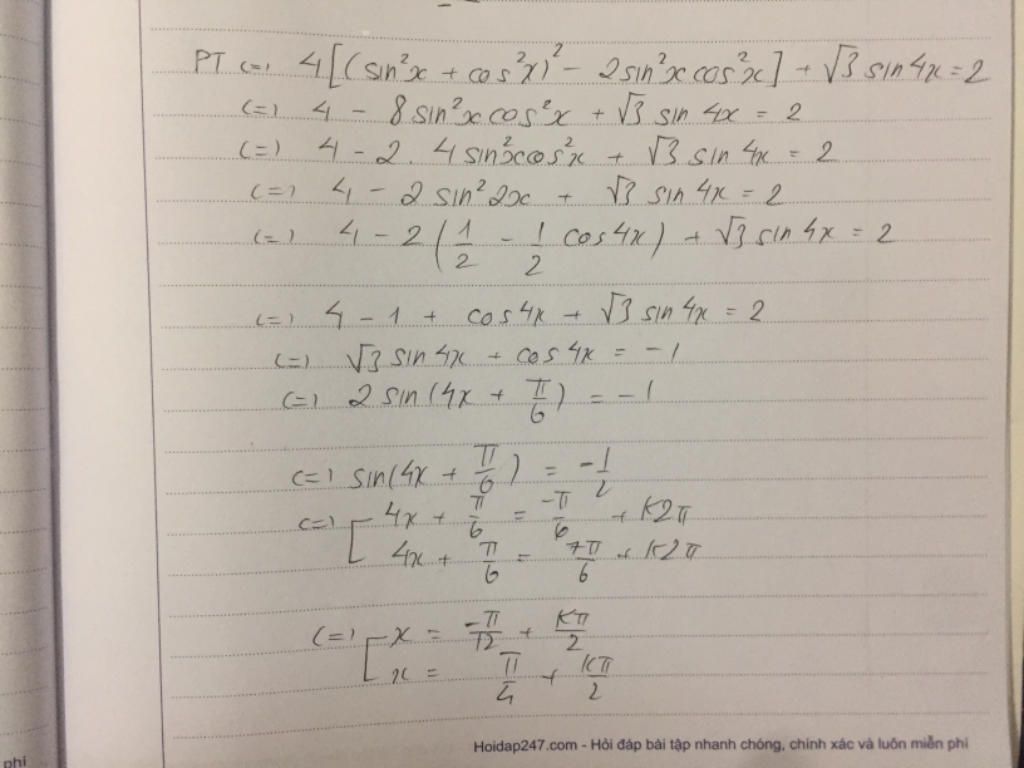 PT (=) 4[(sin²x + cos²x)² - 2sin²xcos²x] + √3 sin4x = 2
(=) 4 - 8sin²xcos²x + √3 sin 4x = 2
(=) 4 - 2. 4sin²xcos²x + √3 sin 4x = 2
(=) 4 - 2 sin²2x + √3 sin 4x = 2
(=) 4 - 2(1/2 - 1/2 cos4x) + √3 sin 4x = 2
(=) 4 - 1 + cos4x + √3 sin 4x = 2
(=) √3 sin 4x + cos 4x = -1
(=) 2 sin(4x + π/6) = -1
(=) sin(4x + π/6) = -1/2
(=) [ 4x + π/6 = -π/6 + K2π
4x + π/6 = 7π/6 + K2π
(=) [ x = -π/12 + Kπ/2
x = π/4 + Kπ/2
Hoidap247.com - Hỏi đáp bài tập nhanh chóng, chính xác và luôn miễn phí
phí